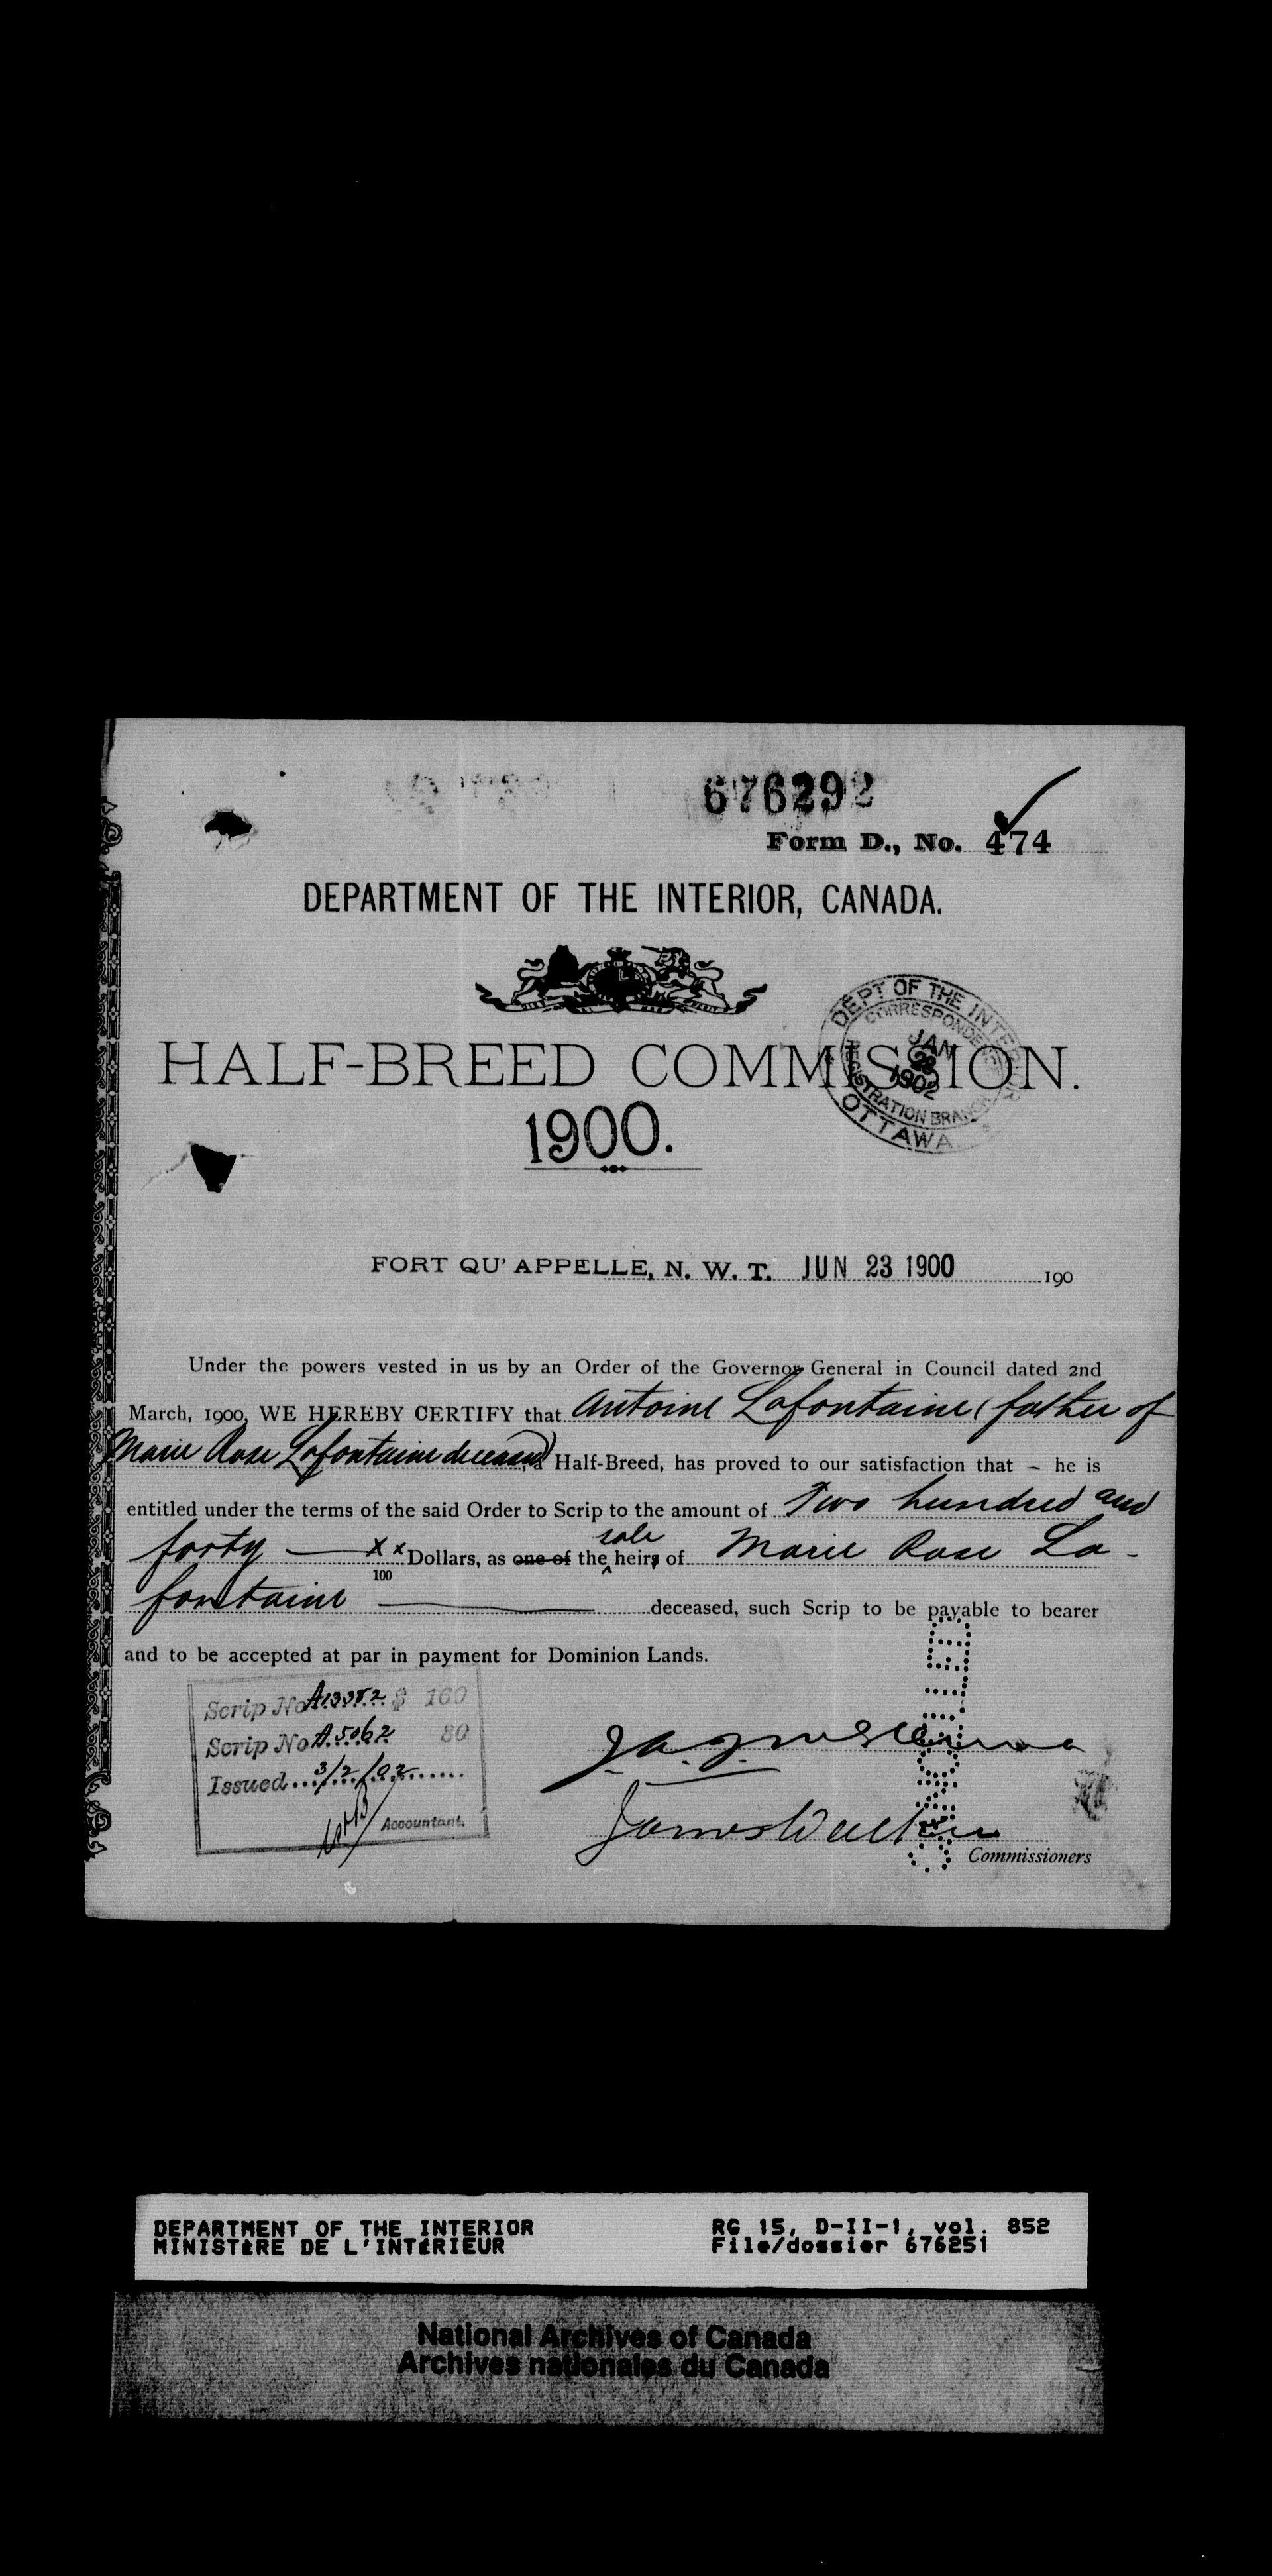 676292
Form D., No. 474
DEPARTMENT OF THE INTERIOR, CANADA.
DEPT OF THE INTERIOR
CORRESPONDENCE
JAN
28
1902
REGISTRATION BRANCH
OTTAWA
HALF-BREED COMMISSION.
1900.
FORT QU'APPELLE, N. W. T. JUN 23 1900 190
Under the powers vested in us by an Order of the Governor General in Council dated 2nd
March, 1900, WE HEREBY CERTIFY that Antoine Lafontaine (father of
Marie Rose Lafontaine deceased), a Half-Breed, has proved to our satisfaction that – he is
entitled under the terms of the said Order to Scrip to the amount of Two hundred and
forty — x x/100 Dollars, as one of the sole heirs of Marie Rose La-
fontaine — deceased, such Scrip to be payable to bearer
and to be accepted at par in payment for Dominion Lands.
Scrip No A13382 $ 160
Scrip No A5062 80
Issued 3/2/02
Accountant.
CANCELLED
James Walker
Commissioners
DEPARTMENT OF THE INTERIOR
MINISTÈRE DE L'INTÉRIEUR
RG 15, D-II-1, vol. 852
File/dossier 676251
National Archives of Canada
Archives nationales du Canada